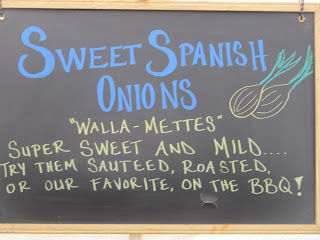 SWEET SPANISH
ONIONS
"WALLA-METTES"
SUPER SWEET AND MILD....
TRY THEM SAUTEED, ROASTED,
OR OUR FAVORITE, ON THE BBQ!